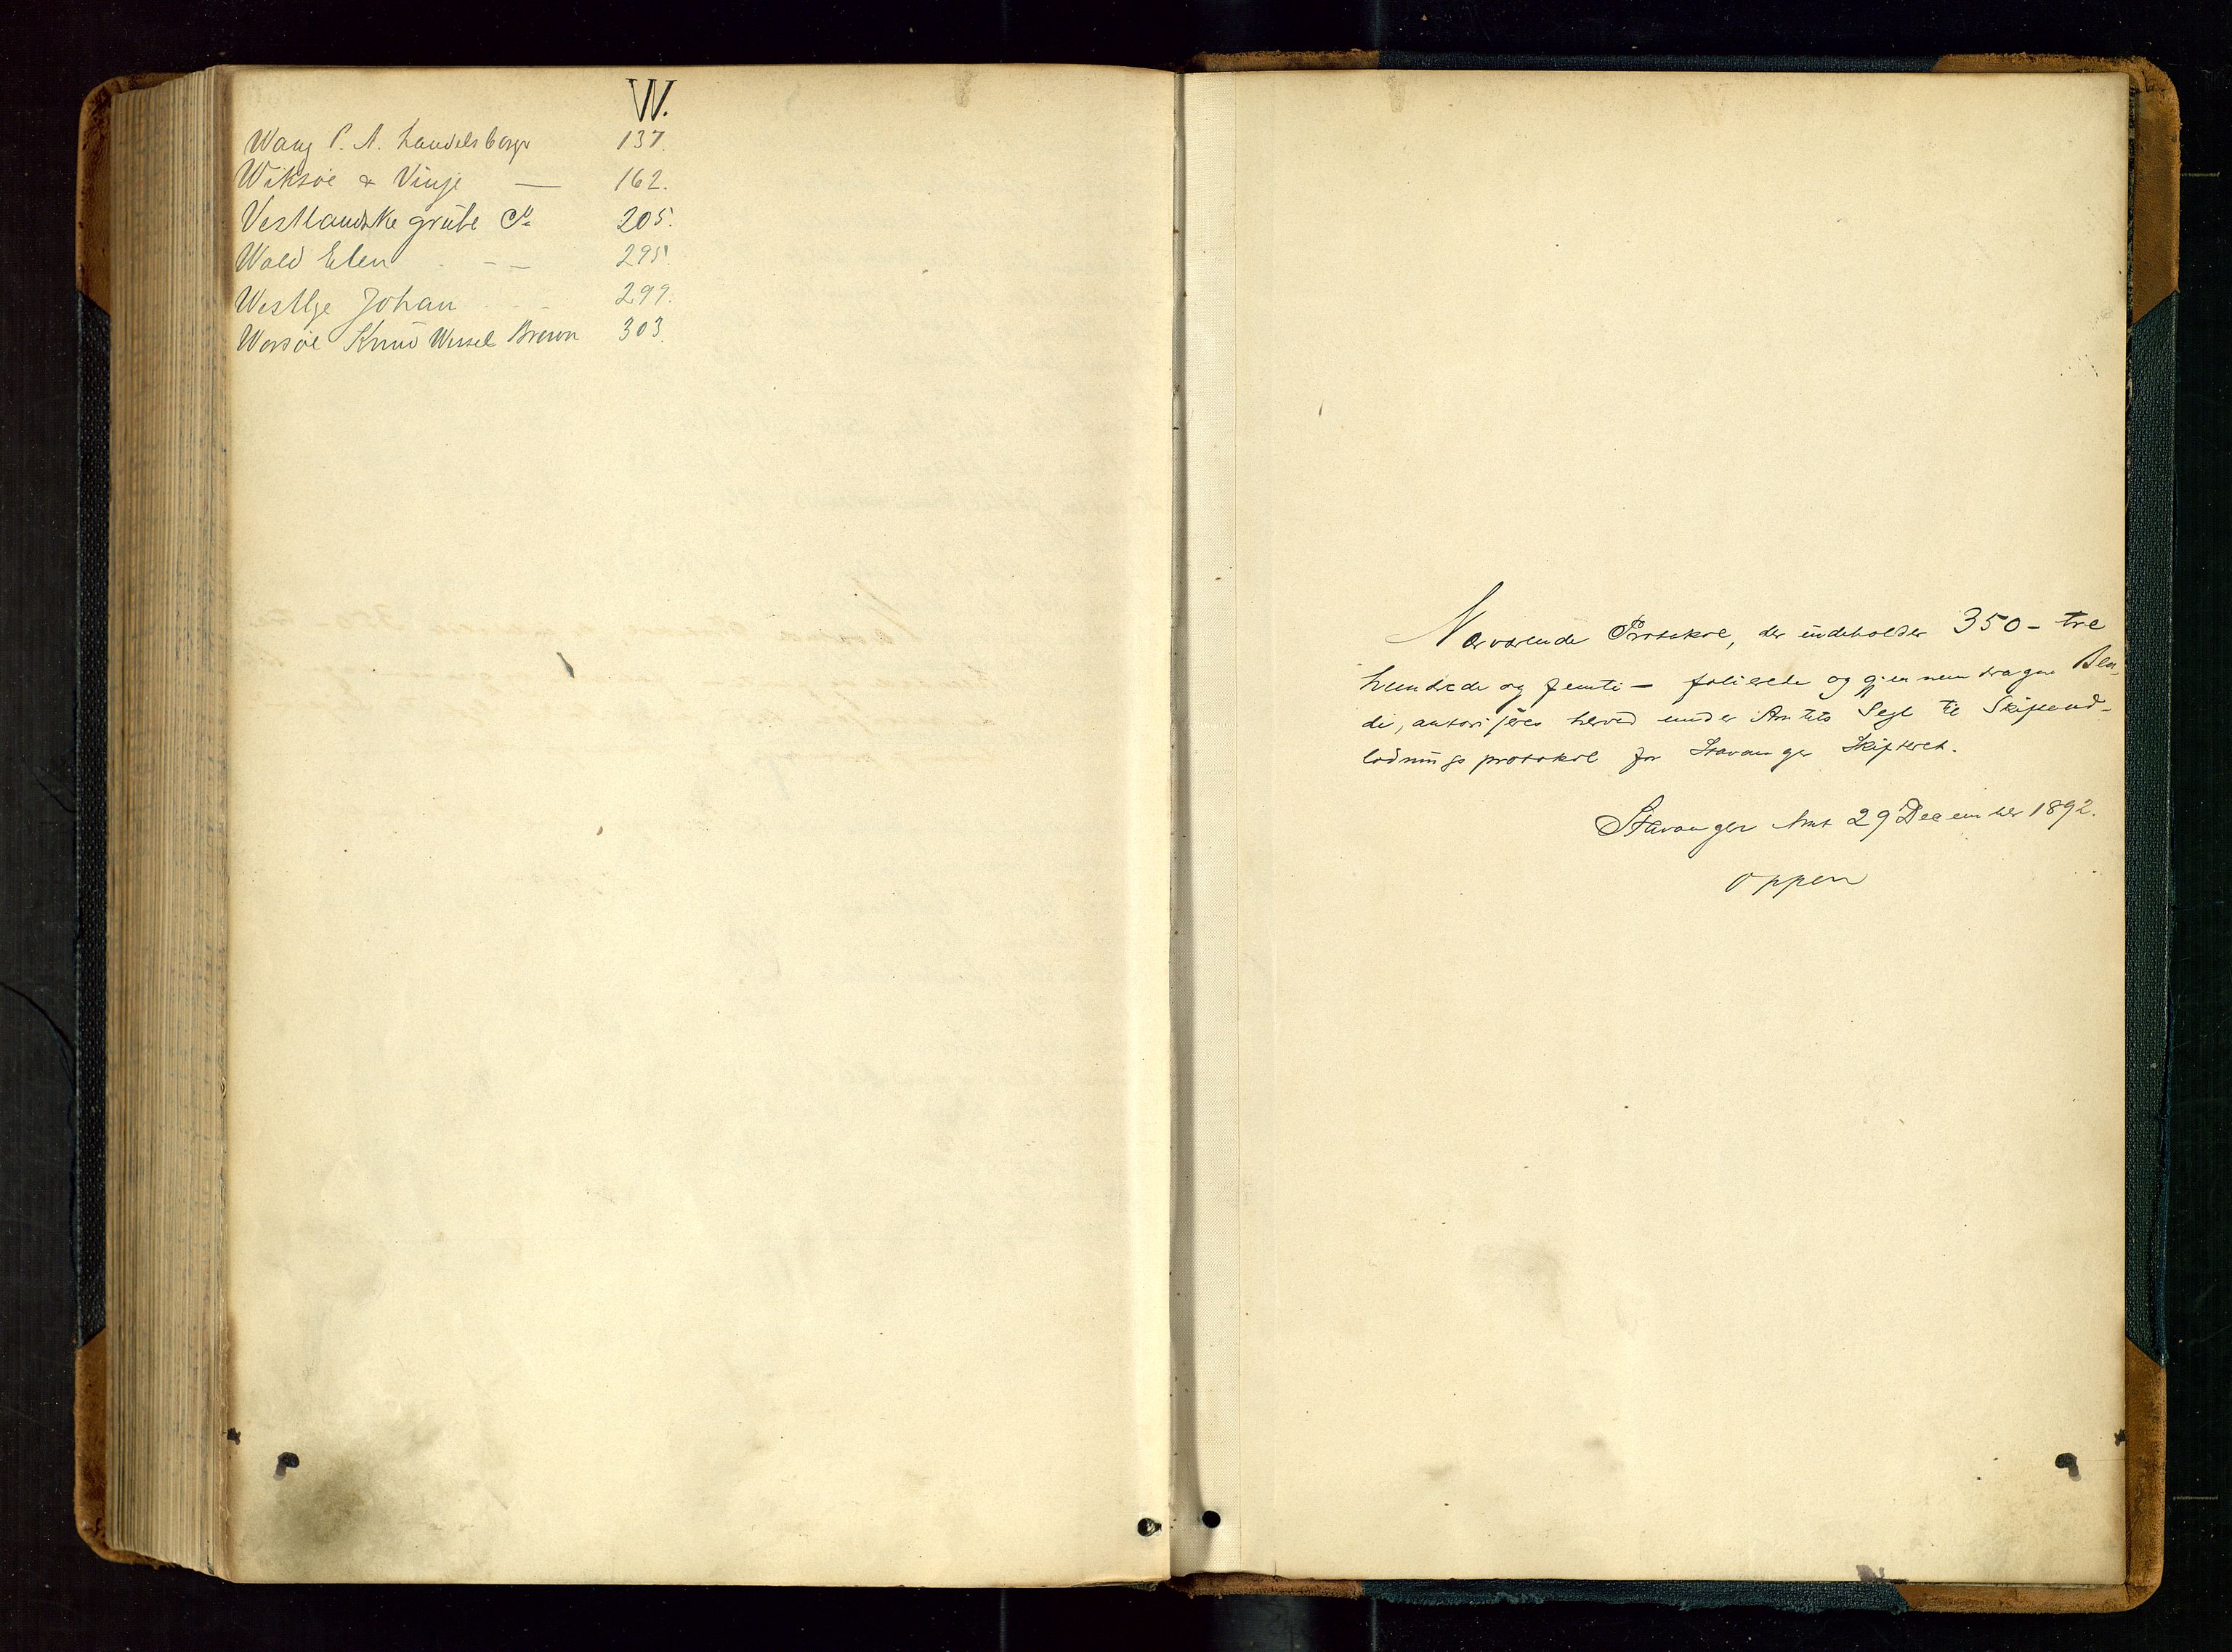 W.
Wang P. A. handelsborgr 137.
Wiksøe & Vinje — 162.
Vestlandske grube Co 205.
Wald Elen - - - 295.
Westlye Johan 299.
Worsøe Knud Wessel Brown 303.
Nærværende Protokol, der indeholder 350 – tre
hundrede og femti – folierede og gjennemdragne Bla-
de, autoriseres herved under Amtets Segl til Skifteud-
lodningsprotokol for Stavanger Skifteret.
Stavanger Amt 29 December 1892.
Oppen